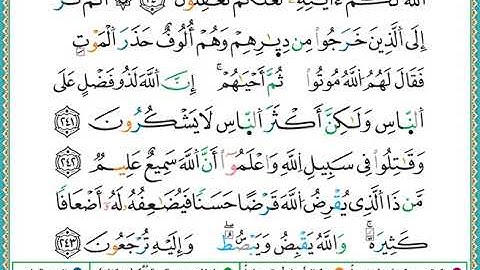 اللَّهُ لَكُمْ ءَايَٰتِهِۦ لَعَلَّكُمْ تَعْقِلُونَ ٢٤٠ أَلَمْ تَرَ
إِلَى ٱلَّذِينَ خَرَجُوا۟ مِن دِيَٰرِهِمْ وَهُمْ أُلُوفٌ حَذَرَ ٱلْمَوْتِ
فَقَالَ لَهُمُ ٱللَّهُ مُوتُوا۟ ثُمَّ أَحْيَٰهُمْ إِنَّ ٱللَّهَ لَذُو فَضْلٍ عَلَى
ٱلنَّاسِ وَلَٰكِنَّ أَكْثَرَ ٱلنَّاسِ لَا يَشْكُرُونَ ٢٤١
وَقَٰتِلُوا۟ فِى سَبِيلِ ٱللَّهِ وَٱعْلَمُوٓا۟ أَنَّ ٱللَّهَ سَمِيعٌ عَلِيمٌ ٢٤٢
مَّن ذَا ٱلَّذِى يُقْرِضُ ٱللَّهَ قَرْضًا حَسَنًا فَيُضَٰعِفُهُۥ لَهُۥ أَضْعَافًا
كَثِيرَةً وَٱللَّهُ يَقْبِضُ وَيَبْصُۜطُ وَإِلَيْهِ تُرْجَعُونَ ٢٤٣